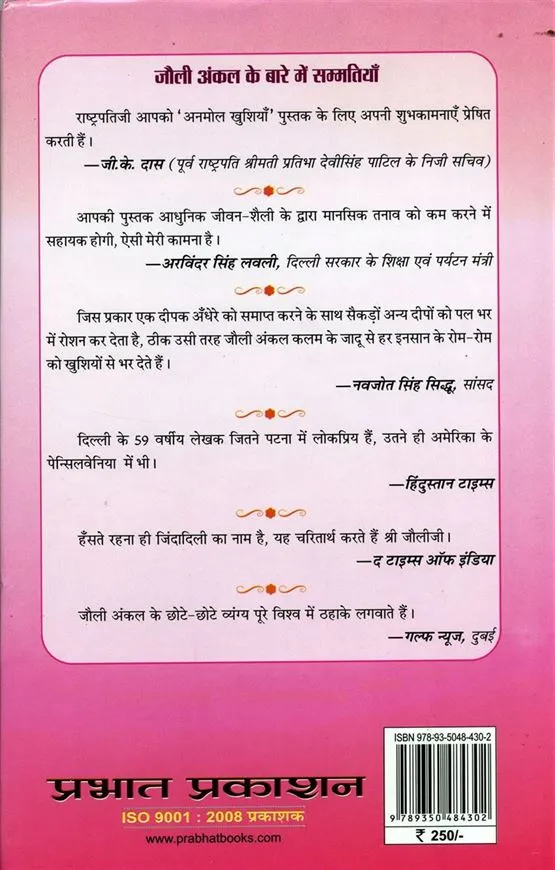 जौली अंकल के बारे में सम्मतियाँ
राष्ट्रपतिजी आपको ‘अनमोल खुशियाँ’ पुस्तक के लिए अपनी शुभकामनाएँ प्रेषित
करती हैं।
—जी.के. दास (पूर्व राष्ट्रपति श्रीमती प्रतिभा देवीसिंह पाटिल के निजी सचिव)
आपकी पुस्तक आधुनिक जीवन-शैली के द्वारा मानसिक तनाव को कम करने में
सहायक होगी, ऐसी मेरी कामना है।
—अरविंदर सिंह लवली, दिल्ली सरकार के शिक्षा एवं पर्यटन मंत्री
जिस प्रकार एक दीपक अँधेरे को समाप्त करने के साथ सैकड़ों अन्य दीपों को पल भर
में रोशन कर देता है, ठीक उसी तरह जौली अंकल कलम के जादू से हर इनसान के रोम-रोम
को खुशियों से भर देते हैं।
—नवजोत सिंह सिद्धू, सांसद
दिल्ली के 59 वर्षीय लेखक जितने पटना में लोकप्रिय हैं, उतने ही अमेरिका के
पेन्सिलवेनिया में भी।
—हिंदुस्तान टाइम्स
हँसते रहना ही जिंदादिली का नाम है, यह चरितार्थ करते हैं श्री जौलीजी।
—द टाइम्स ऑफ इंडिया
जौली अंकल के छोटे-छोटे व्यंग्य पूरे विश्व में ठहाके लगवाते हैं।
—गल्फ न्यूज, दुबई
ISBN 978-93-5048-430-2
9 789350 484302
₹ 250/-
प्रभात प्रकाशन
ISO 9001 : 2008 प्रकाशक
www.prabhatbooks.com